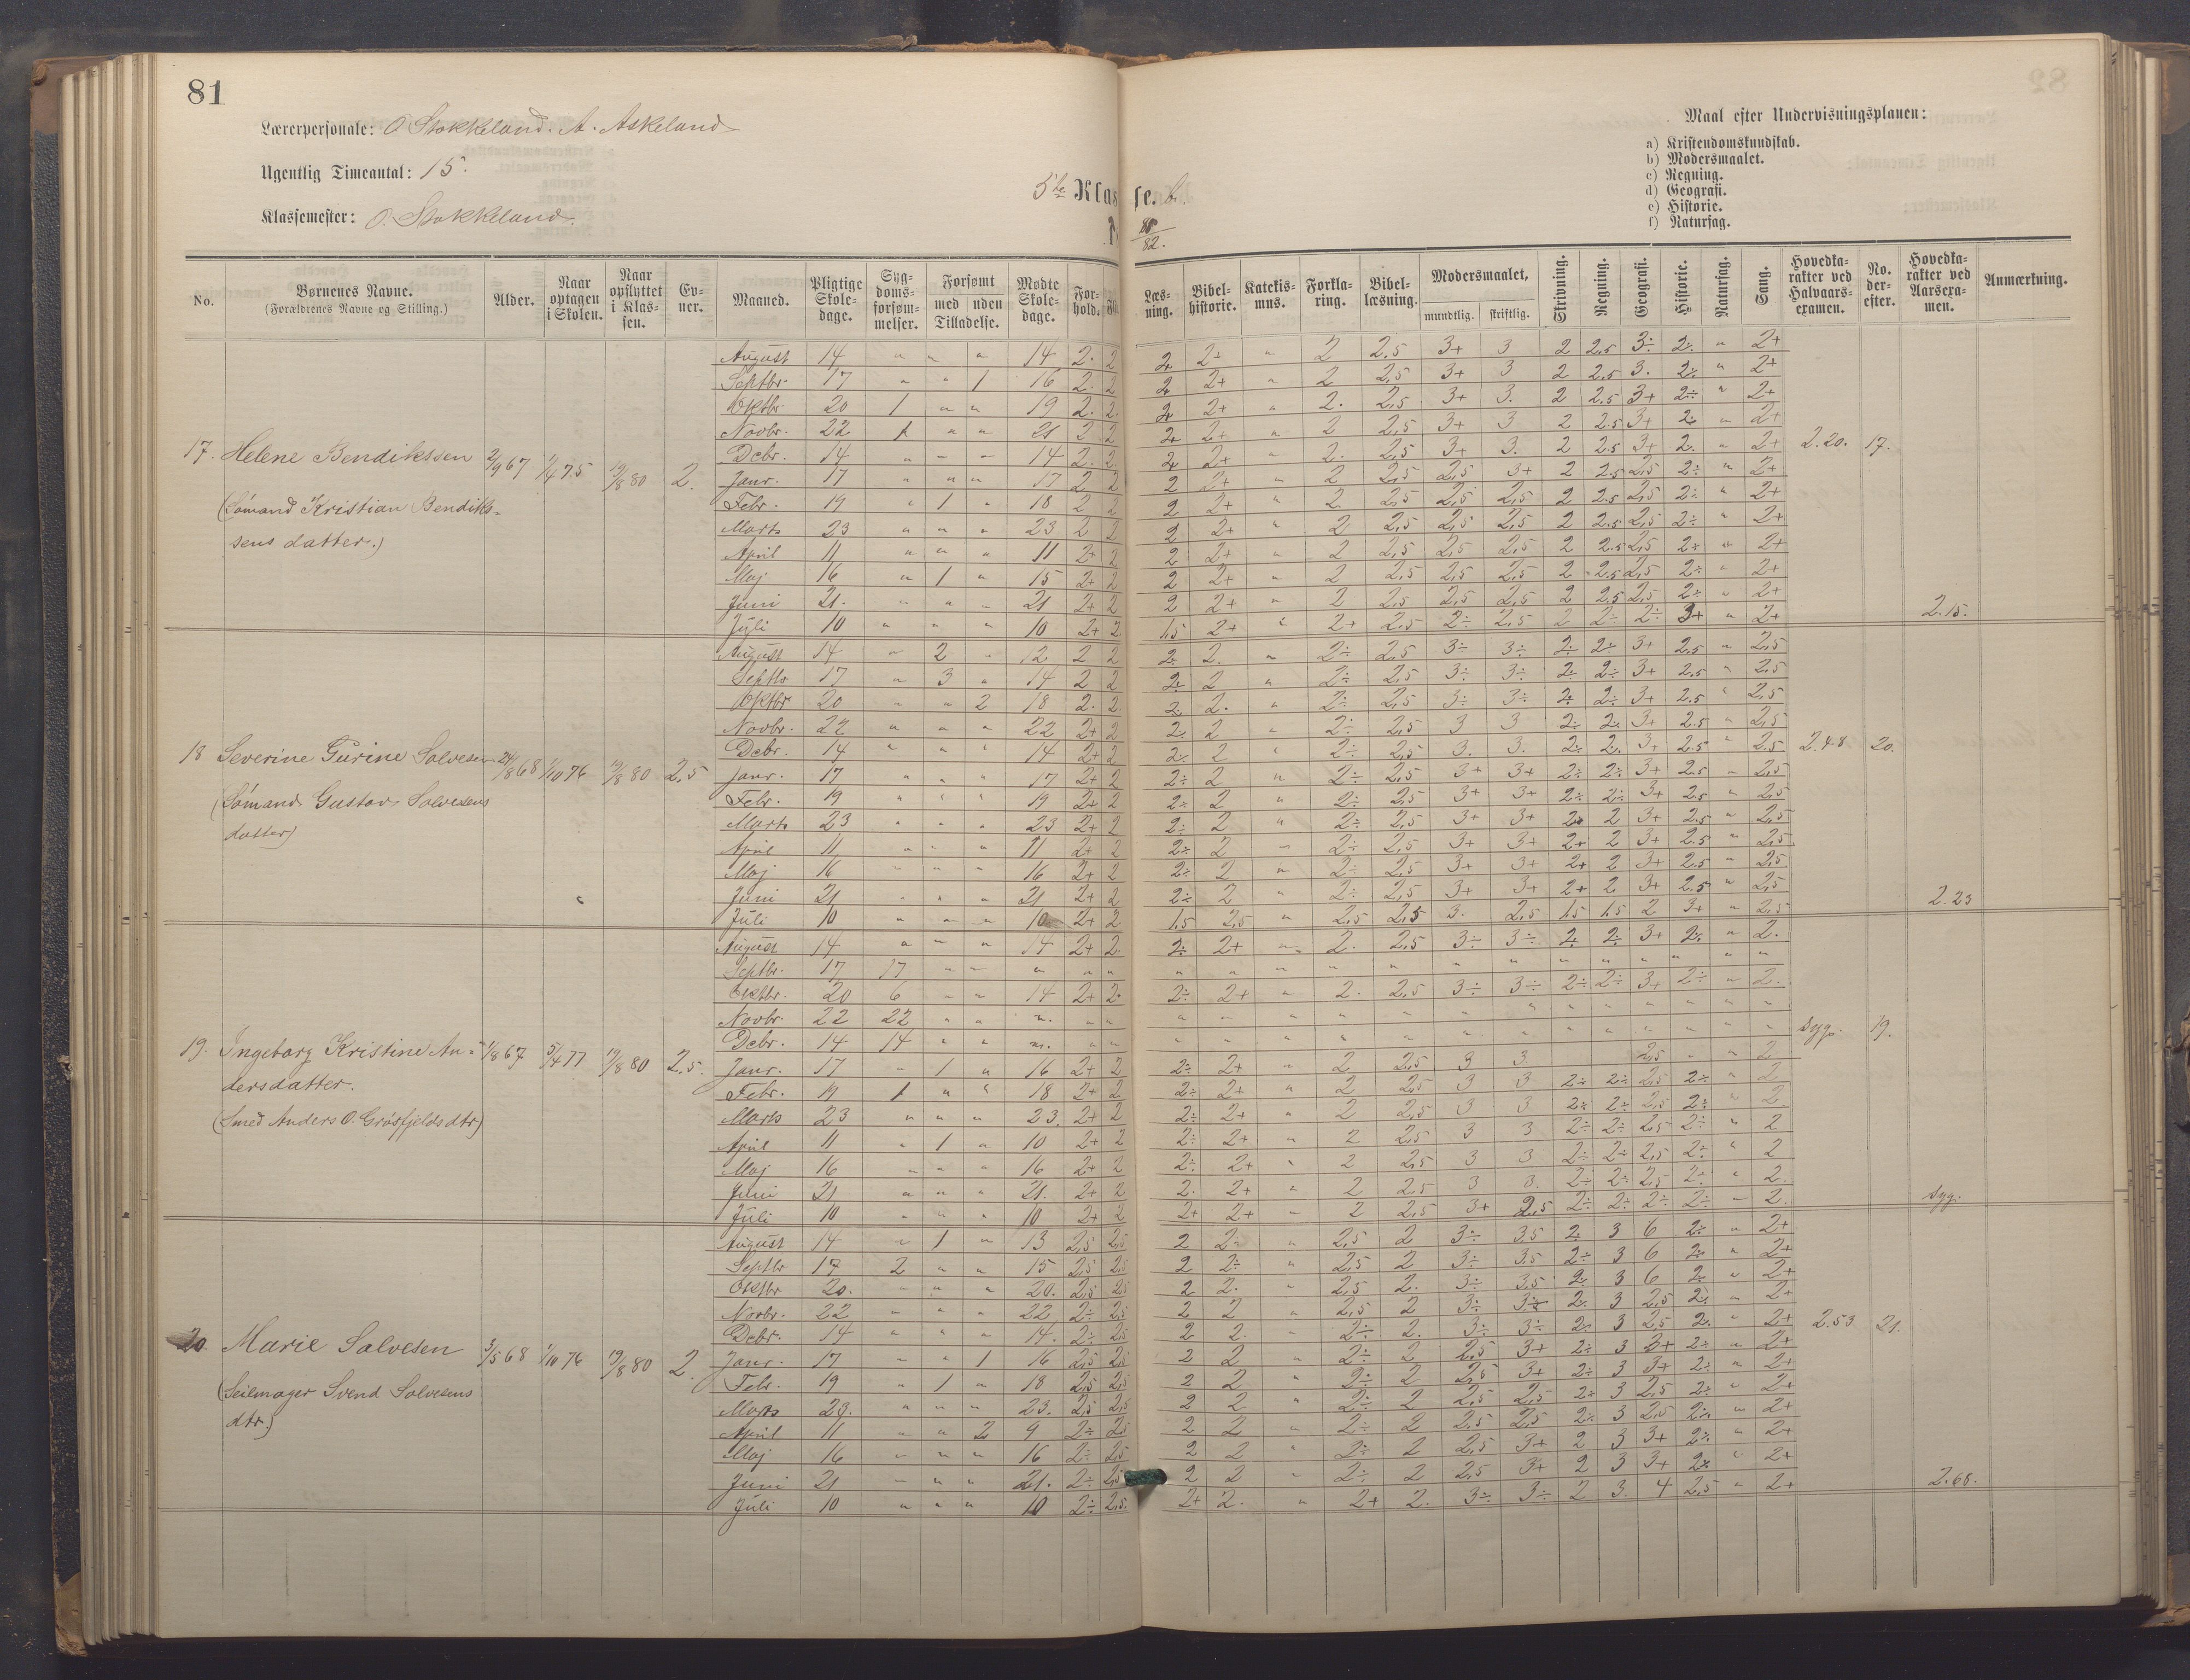 81
Lærerpersonale: O Stokkeland. A. Askeland
Ugentlig Timeantal: 15.
Klassemester: O. Stokkeland.
5te Klasse. b.
82.
Maal efter Undervisningsplanen:
a) Kristendomskundskab.
b) Modersmaalet.
c) Regning.
d) Geografi.
e) Historie.
f) Naturfag.
No. Børnenes Navne. (Forældrenes Navne og Stilling.) Alder. Naar optagen i Skolen. Naar opflyttet i Klassen. Evner. Maaned. Pligtige Skoledage. Sygdomsforsømmelser. Forsømt med uden Tilladelse. Mødte Skoledage. Forhold. Læsning. Bibelhistorie. Katekismus. Forklaring. Bibellæsning. Modersmaalet, mundtlig. skriftlig. Skrivning. Regning. Geografi. Historie. Naturfag. Sang. Hovedkarakter ved Halvaarsexamen. No. derefter. Hovedkarakter ved Aarsexamen. Anmærkning.
17. Helene Bendikssen 2/9 67 1/4 75 19/8 80 2.
(Sømand Kristian Bendiks-
sens datter.)
August 14 " " " 14 2. 2 2+ 2+ " 2 2.5 3+ 3 2 2.5 3÷ 2÷ " 2+
Septbr. 17 " " 1 16 2. 2 2+ 2+ " 2 2,5 3+ 3 2 2.5 3. 2÷ " 2+
Oktbr. 20 1 " " 19 2. 2. 2+ 2+ " 2. 2,5 3+ 3. 2 2.5 3+ 2÷ " 2+
Novbr. 22 1 " " 21 2 2 2+ 2+ " 2 2,5 3+ 3 2 2.5 3+ 2÷ " 2+
Debr. 14 " " " 14 2. 2. 2+ 2+ " 2. 2,5 3+ 3. 2 2.5 3+ 2÷ " 2+ 2.20. 17.
Janr. 17 " " " 17 2 2 2 2+ " 2 2,5 2,5 3+ 2 2.5 2,5 2÷ " 2+
Febr. 19 " 1 " 18 2 2 2 2+ " 2 2,5 2,5 2,5 2 2.5 2,5 2÷ " 2+
Marts 23 " " " 23 2 2 2 2+ " 2 2,5 2,5 2,5 2 2.5 2,5 2÷ " 2+
April 11 " " " 11 2+ 2 2 2+ " 2 2,5 2,5 2,5 2 2.5 2,5 2÷ " 2+
Maj 16 " 1 " 15 2+ 2 2 2+ " 2 2,5 2,5 2,5 2 2.5 2,5 2÷ " 2+
Juni 21. " " " 21 2+ 2 2 2+ " 2 2,5 2,5 2,5 2 2.5 2,5 2÷ " 2+
Juli 10 " " " 10 2+ 2 1,5 2+ " 2+ 2,5 2÷ 2,5 2 2÷ 2÷ 3+ " 2+ 2.15.
18 Severine Gurine Salvesen 24/8 68 1/10 76 19/8 80 2,5
(Sømand Gustav Salvesens
datter)
August 14 " 2 " 12 2 2 2÷ 2. " 2÷ 2,5 3÷ 3÷ 2÷ 2÷ 3+ 2.5 " 2,5
Septbr 17 " 3 " 14 2 2 2÷ 2 " 2÷ 2,5 3÷ 3÷ 2÷ 2÷ 3+ 2.5 " 2,5
Oktbr 20 " " 2 18 2. 2. 2÷ 2. " 2÷ 2,5 3÷ 3÷ 2÷ 2÷ 3+ 2.5 " 2,5
Novbr. 22 " " " 22 2+ 2 2÷ 2 " 2÷ 2,5 3 3 2÷ 2÷ 3+ 2.5 " 2,5
Debr. 14 " " " 14 2+ 2 2÷ 2 " 2÷ 2,5 3. 3. 2÷ 2÷ 3+ 2.5 " 2.5 2.48 20.
Janr. 17 " " " 17 2+ 2 2÷ 2 " 2÷ 2,5 3+ 3+ 2÷ 2÷ 3+ 2.5 " 2,5
Febr. 19 " " " 19 2+ 2 2÷ 2 " 2÷ 2,5 3+ 3+ 2÷ 2÷ 3+ 2.5 " 2,5
Marts 23 " " " 23 2+ 2 2÷ 2 " 2÷ 2,5 3+ 3+ 2+ 2 3+ 2.5 " 2,5
April 11 " " " 11 2+ 2 2÷ 2 " 2÷ 2,5 3+ 3+ 2+ 2 3+ 2.5 " 2,5
Maj 16 " " " 16 2+ 2 2÷ 2 " 2÷ 2,5 3+ 3+ 2+ 2 3+ 2.5 " 2,5
Juni 21 " " " 21 2+ 2 2÷ 2 " 2÷ 2,5 3+ 3+ 2+ 2 3+ 2.5 " 2,5
Juli 10 " " " 10 2+ 2 1,5 2,5 " 2,5 2,5 3. 2,5 1.5 1.5 2 3+ " 2,5 2.23
19. Ingeborg Kristine An- 1/8 67 5/4 77 19/8 80 2,5.
dersdatter.
(Smed Anders O. Grøsfjelds dtr)
August 14 " " " 14 2+ 2. 2÷ 2+ " 2. 2,5 3÷ 3÷ 2÷ 2÷ 3+ 2÷ " 2.
Septbr. 17 17 " " " " " " " " " " " " " " " " " "
Oktbr. 20 6 " " 14 2+ 2. 2÷ 2+ " 2. 2,5 3÷ 3÷ 2÷ 2÷ 3+ 2÷ " 2.
Novbr. 22 22 " " " " " " " " " " " " " " " " " "
Debr. 14 14 " " " " " " " " " " " " " " " " " " syg. 19.
Janr. 17 " 1 " 16 2+ 2 2÷ 2+ " 2 2,5 3 3 2,5 " " 2
Febr. 19 1 " " 18 2+ 2 2÷ 2+ " 2 2,5 3 3 2÷ 2÷ 2,5 2÷ " 2
Marts 23 " " " 23. 2+ 2 2÷ 2+ " 2 2,5 3 3 2÷ 2÷ 2,5 2÷ " 2
April 11 " 1 " 10 2+ 2 2÷ 2+ " 2 2,5 3 3 2÷ 2÷ 2,5 2÷ " 2
Maj 16 " " " 16 2+ 2 2÷ 2+ " 2 2,5 3 3 2÷ 2÷ 2,5 2÷ " 2
Juni 21 " " " 21. 2+ 2 2. 2+ " 2 2,5 3 3. 2÷ 2÷ 2,5 2÷ " 2.
Juli 10 " " " 10 2+ 2 2+ 2+ " 2 2,5 3+ 2,5 2÷ 2÷ 2÷ 2÷ " 2. syg.
20. Marie Salvesen 3/5 68 1/10 76 19/8 80 2.
(Seilmager Svend Salvesens
dtr.)
August 14 " 1 " 13 2,5 2,5 2 2÷ " 2,5 2 3÷ 3.5 2÷ 3 6 2÷ " 2+
Septbr 17 2 " " 15 2,5 2,5 2 2÷ " 2,5 2 3÷ 3.5 2÷ 3 6 2÷ " 2+
Oktbr 20. " " " 20. 2,5 2,5 2 2. " 2,5 2. 3÷ 3,5 2÷ 3 6 2÷ " 2+
Novbr. 22 " " " 22 2÷ 2,5 2 2 " 2,5 2 3÷ 3÷ 2÷ 3 2,5 2÷ " 2+
Debr. 14 " " " 14. 2÷ 2,5 2 2. " 2÷ 2. 3÷ 3÷ 2÷ 3 2,5 2÷ " 2+ 2.53 21.
Janr. 17 " " 1 16 2,5 2,5 2 2 " 2÷ 2 2,5 3+ 2÷ 3 3+ 2÷ " 2+
Febr. 19 " 1 " 18 2,5 2,5 2 2 " 2÷ 2 2,5 3+ 2÷ 3 3+ 2÷ " 2+
Marts 23. " " " 23. 2,5 2,5 2 2 " 2÷ 2 2,5 2,5 2÷ 3 2,5 2÷ " 2+
April 11 " " 2 9 2÷ 2,5 2 2 " 2÷ 2 2.5 2,5 2÷ 3 2,5 2÷ " 2+
Maj 16 " " " 16 2÷ 2,5 2 2 " 2÷ 2 2,5 3+ 2 3 3+ 2÷ " 2+
Juni 21 " " " 21. 2÷ 2,5 2 2 " 2÷ 2 2,5 3+ 2 3 3+ 2÷ " 2+
Juli 10 " " " 10 2÷ 2,5. 2+ 2. " 2+ 2. 3÷ 3÷ 2 3. 4 2,5 " 2+ 2.68.